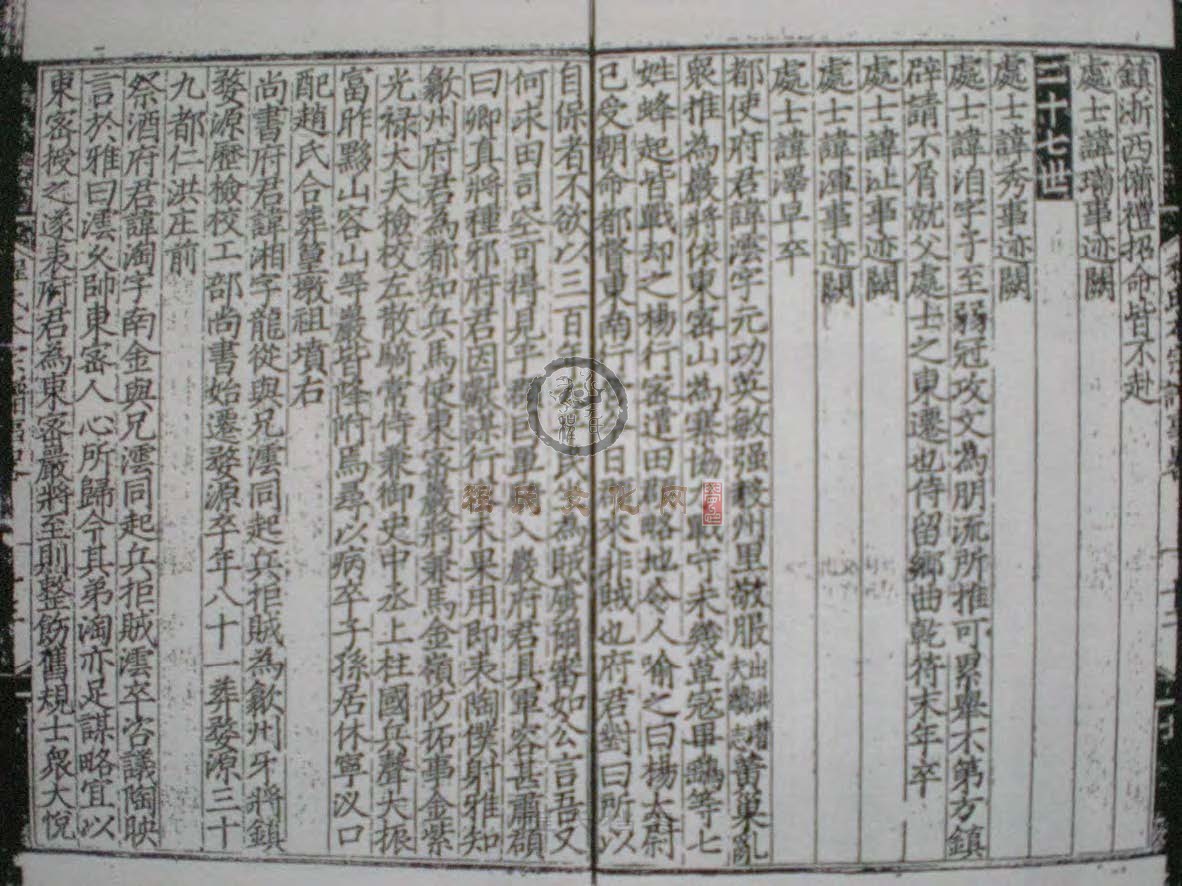 鎮浙西備禮招命皆不赴
處士諱璊事迹闕
三十七世
處士諱秀事迹闕
處士諱洎字子至弱冠攻文為朋流所推可累舉不第方鎮
辟請不屑就父處士之東遷也侍留鄉曲乾符末年卒
處士諱沚事迹闕
處士諱渾事迹闕
處士諱澤早卒
都使府君諱澐字元功英敏强毅州里敬服黄巢亂
衆推為巖將依東密山為寨協力戰守未幾草寇畢鷂等七
姓蜂起皆戰却之楊行密遣田頵略地令人喻之曰楊太尉
已受朝命都督東南行日來非賊也府君對曰所以
自保者不欲以三百年民坐為賊虜爾審如公言吾又
何求田司空可得見乎單入巖府君具軍容甚肅頵
曰卿真將種邪府君因獻謀行未果用即表陶僕射雅知
歙州府君為都知兵馬使東密巖將兼馬金嶺防拓事金紫
光禄大夫檢校左散騎常侍兼御史中丞上柱國兵聲大振
富昨黟山容山等巖皆降附焉尋以病卒子孫居休寧汊口
配趙氏合葬篁墩祖墳右
尚書府君諱湘字龍從與兄澐同起兵拒賊為歙州牙將鎮
婺源歷檢校工部尚書始遷婺源卒年八十一葬婺源三十
九都仁洪庄前
祭酒府君諱淘字南金與兄澐同起兵拒賊澐卒咨議陶映
言於雅曰澐久帥東密人心所歸今其弟淘亦足謀略宜以
東密授之遂表府君為東密巖將至則整飭舊規士衆大悅
程明文化网